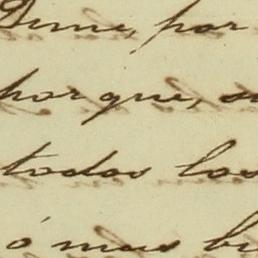 Dime, por
porque, 
todos los
ó mas bi